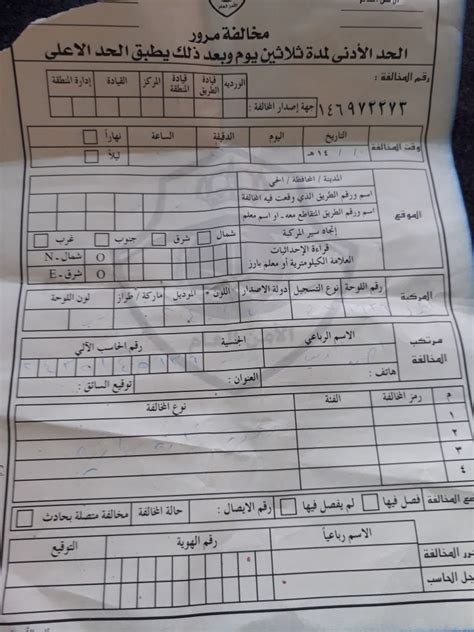 الأمن العام
مخالفة مرور
الحد الأدنى لمدة ثلاثين يوم وبعد ذلك يطبق الحد الاعلى
رقم المخالفة :
١٤٦٩٧٢٢٧٣
جهة إصدار المخالفة :
الورديه
قيادة الطريق
قيادة المنطقة
المركز
القيادة
إدارة المنطقة
وقت المخالفة
التاريخ
اليوم
الدقيقة
الساعة
نهاراً
/ / ١٤ هـ
ليلاً
الموقع
المدينة / المحافظة / الحي
اسم ورقم الطريق الذي وقعت فيه المخالفة
اسم ورقم الطريق المتقاطع معه - او اسم معلم
إتجاه سير المركبة
شمال
شرق
جنوب
غرب
قراءة الإحداثيات
العلامة الكيلومترية أو معلم بارز
شمال - N
شرق - E
المركبة
رقم اللوحة
نوع التسجيل
دولة الاصدار
اللون
الموديل
ماركة / طراز
لون اللوحة
مرتكب المخالفة
الاسم الرباعي
الجنسية :
رقم الحاسب الآلي
هاتف :
العنوان :
توقيع السائق :
م
رمز المخالفة
الفئة
نوع المخالفة
١
٢
٣
٤
المخالفة
فصل فيها
لم يفصل فيها
رقم الايصال :
حالة المخالفة
مخالفة متصلة بحادث
الاسم رباعياً
رقم الهوية
التوقيع
المخالفة
الحاسب